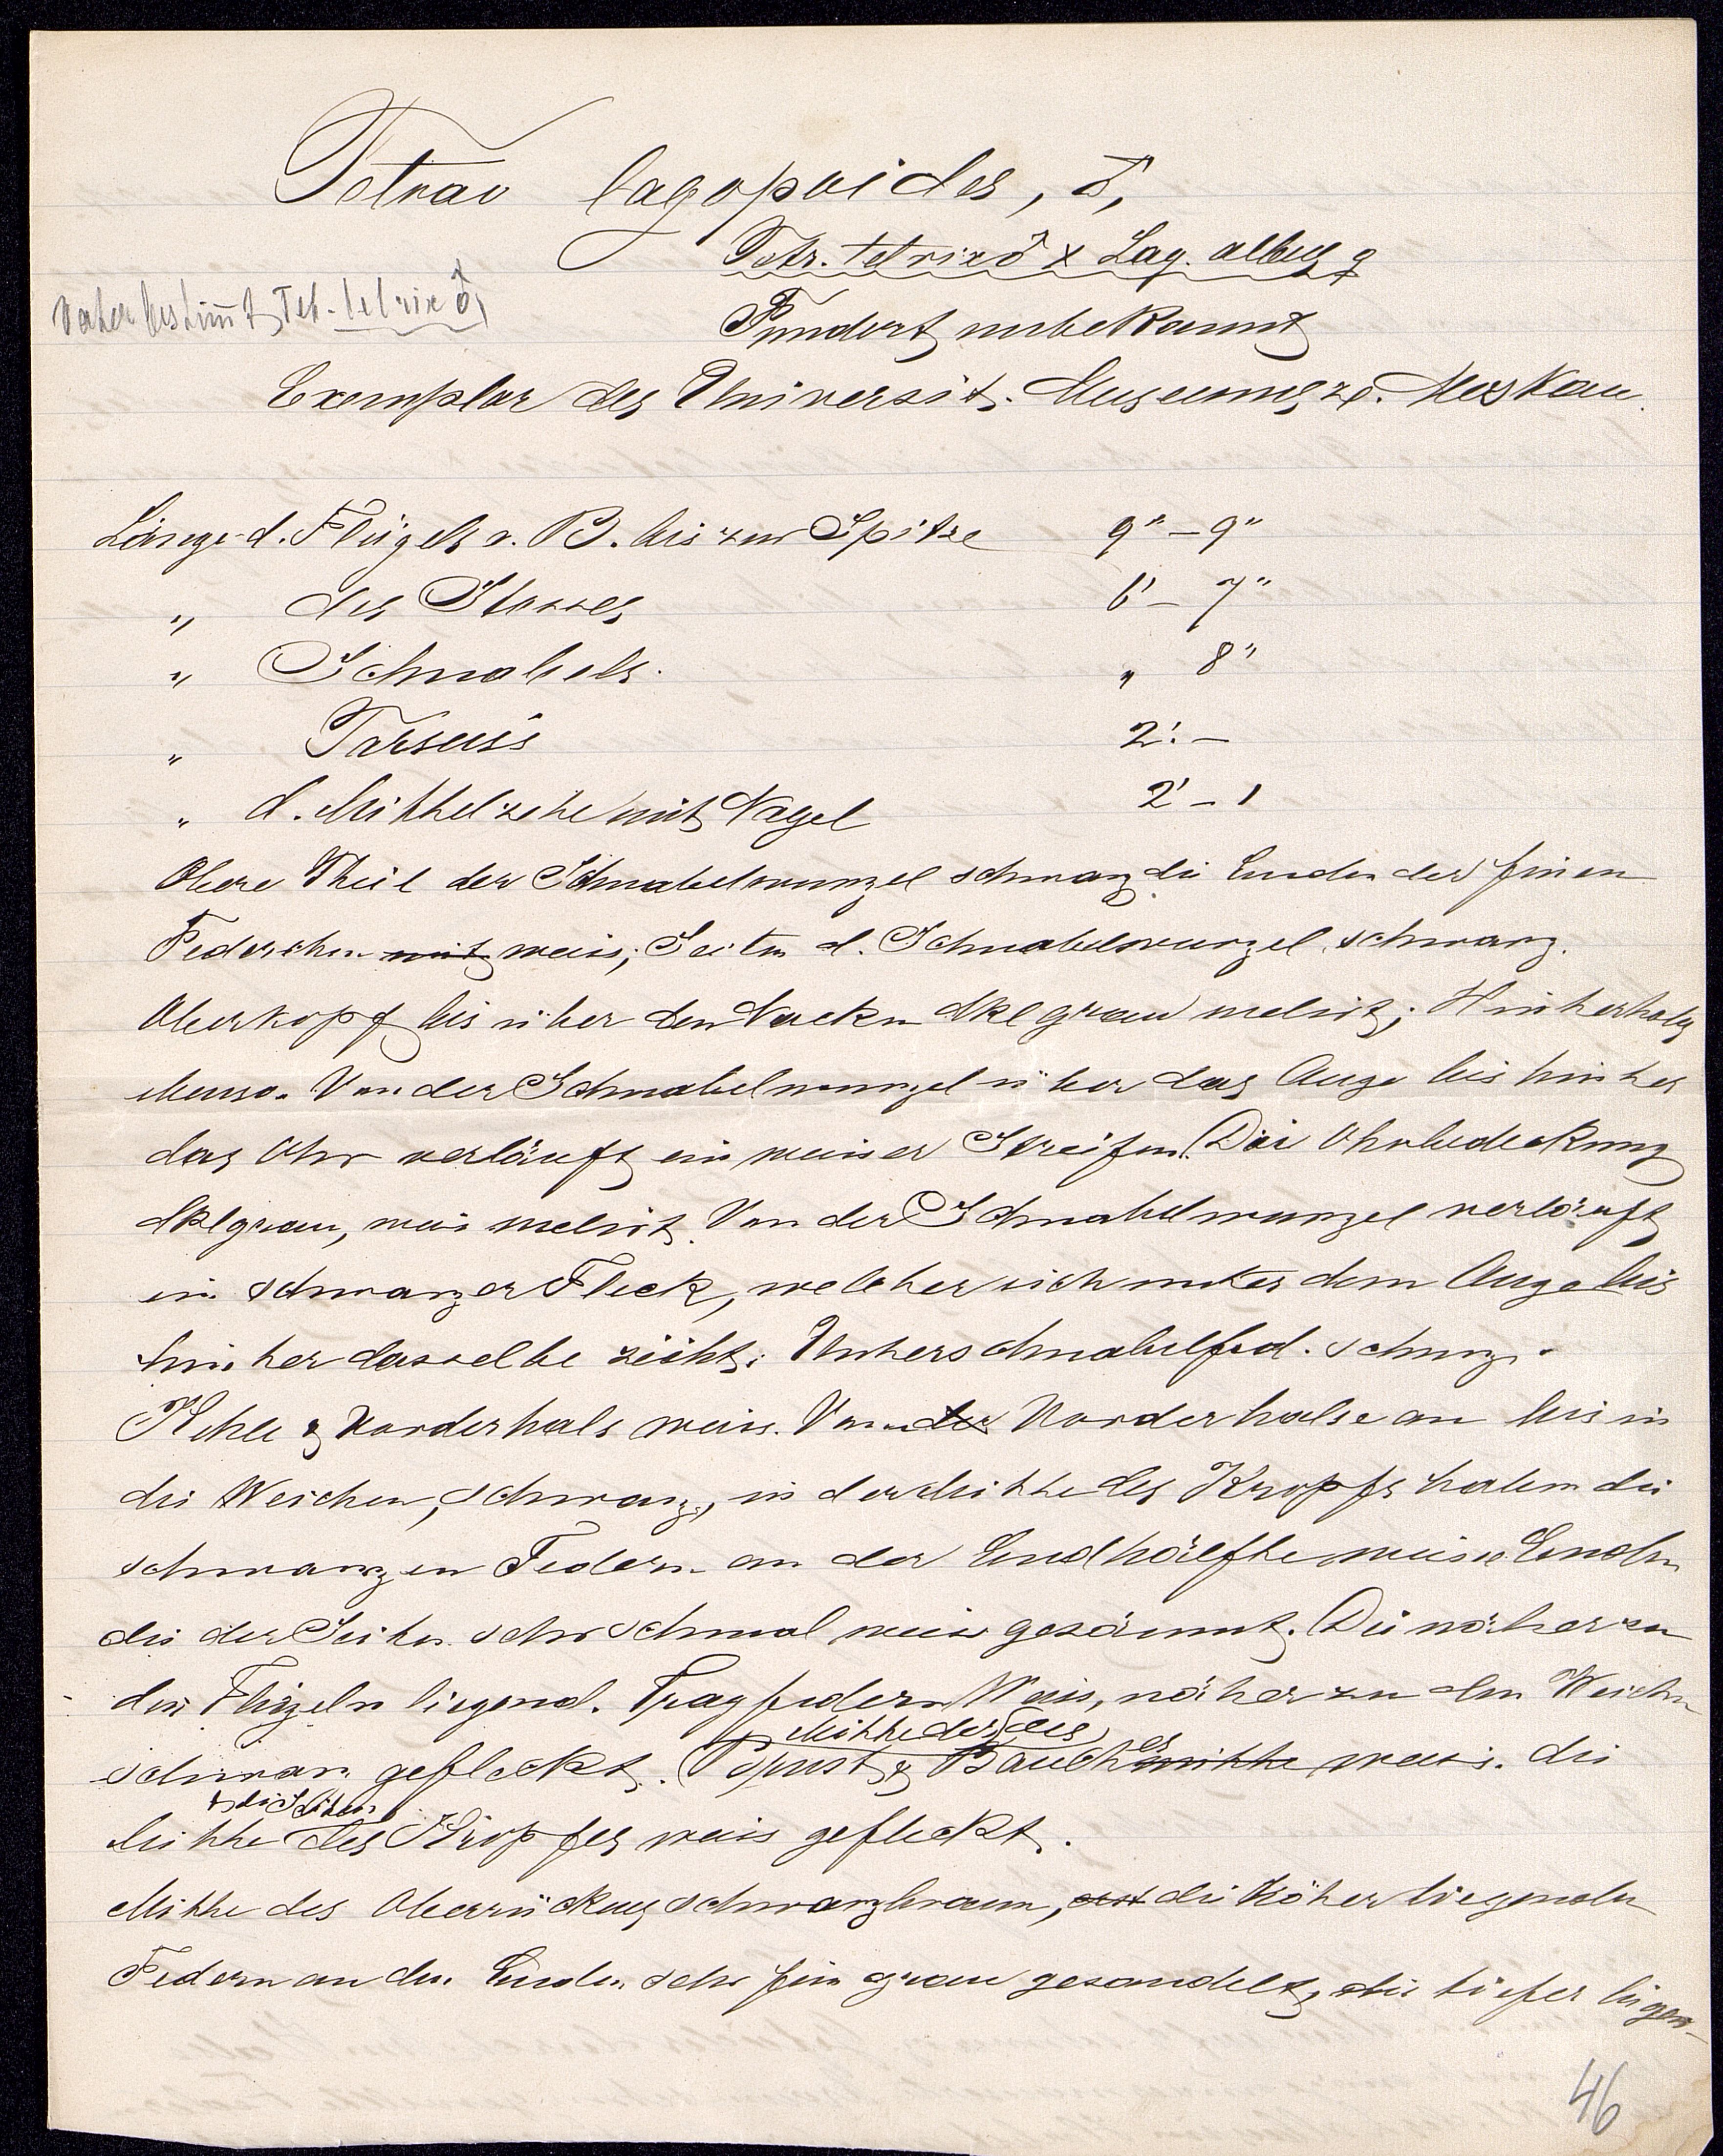 Tetrao lagopoides, ♂,
Tetr. tetrix ♂ x Lag. albus ♀
Vater bestim̄t Tet. tetrix ♂,
Fundort unbekannt
Exemplar des Universit. Museums zu Moskau.
Länge d. Flügels v. B. bis zur Spitze 9" – 9"
" des Stosses 6' – 7"
" Schnabels. " 8"
" Tarsus 2'. –
" d. Mittelzehe mit Nagel 2' – 1
Obere Theil der Schnabelwurzel schwarz die Enden der feinen
Federchen mit weis; Seiten d. Schnabelwurzel schwarz.
Oberkopf bis über den Nacken dklgrau melirt; Hinterhals
ebenso. Von der Schnabelwurzel über das Auge bis hinter
das Ohr verläuft ein weiser Streifen. Die Ohrbedeckung
dklgrau, weis melirt. Von der Schnabelwurzel verläuft
ein schwarzer Fleck, welcher sich unter dem Auge bis
hinter dasselbe zieht; Unterschnabelfed. schwrz.
Kehle & Vorderhals weis. Von der Vorderhalse an bis in
die Weichen, schwarz, in der Mitte des Kropfs haben die
schwarzen Federn an der Endhälfte weise Enden
die der Seiten sehr schmal weis gesäumt. Die näher zu
den Flügeln liegend. Tragfedern Weis, näher zu den Weichen
schwarz gefleckt. Mitte der Brust & des Bauches mitte weis. die
Mitte & die Seiten des Kropfes weis gefleckt.
Mitte des Oberrückens schwarzbraun, die höher liegenden
Federn an den Enden sehr fein grau gesandelt, die tiefer liegen-
46